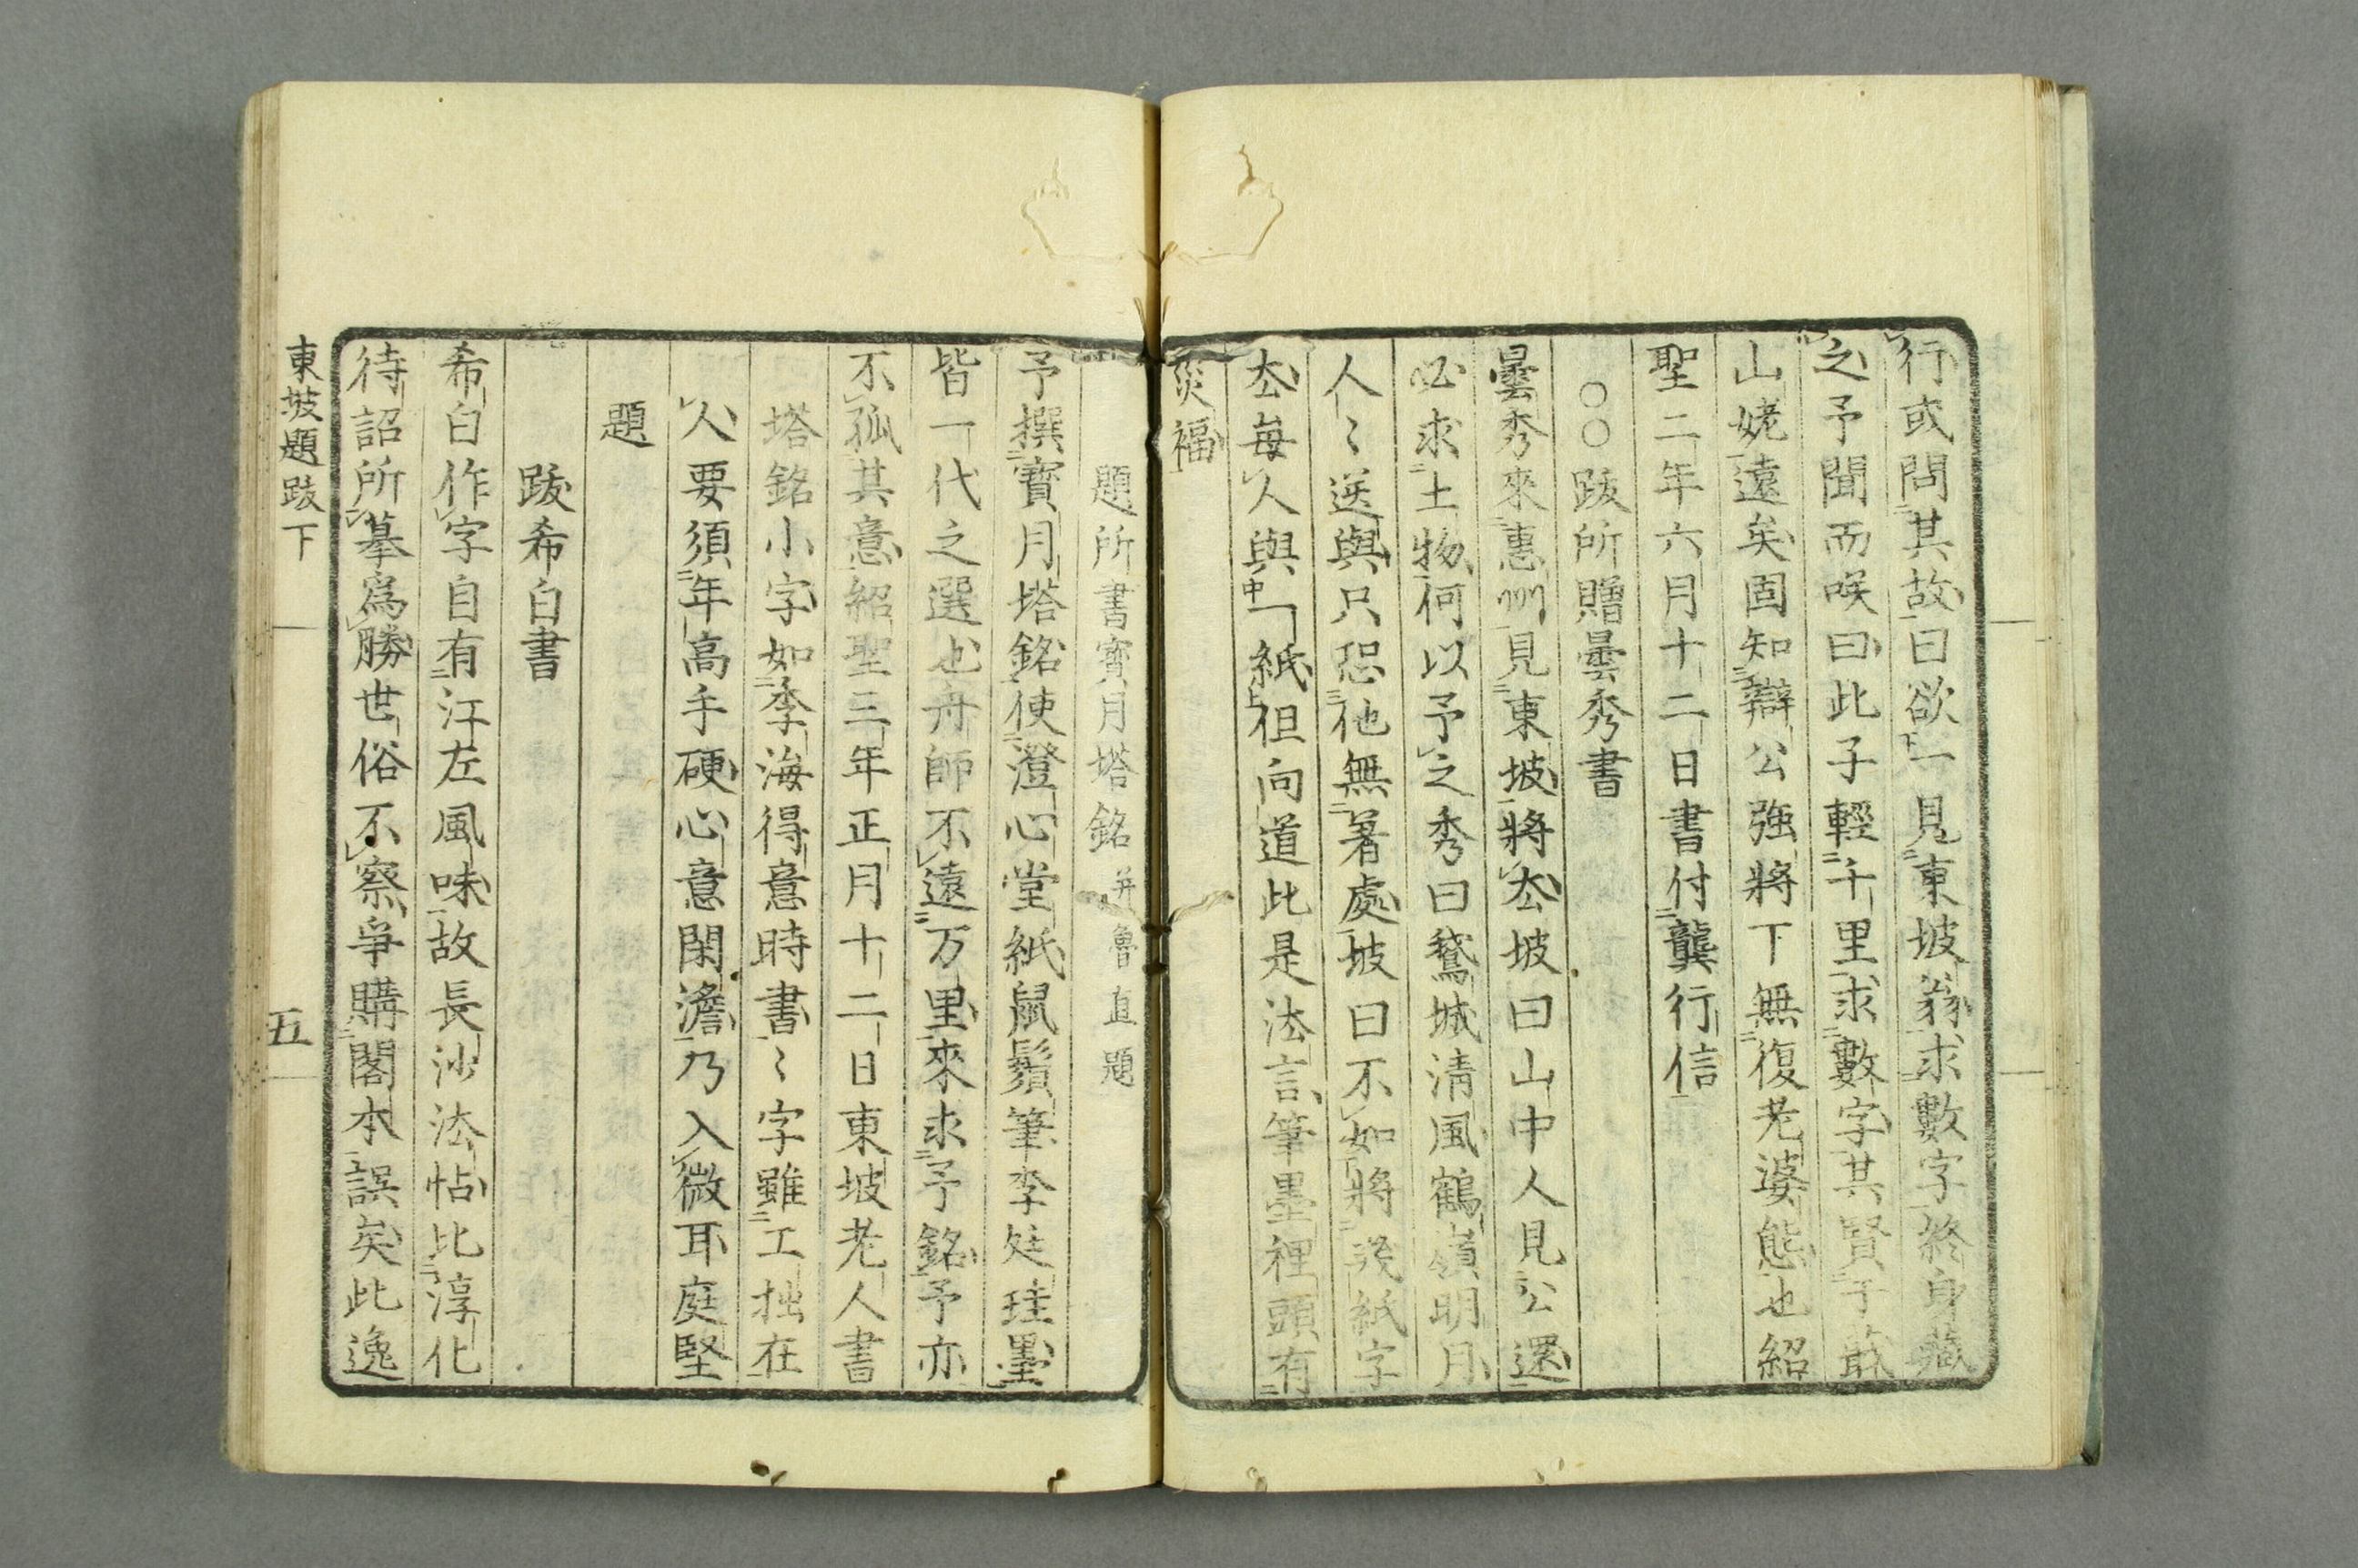 行或問其故曰欲一見東坡翁求數字終身藏
之予聞而咲曰此子輕千里求數字其賢予蕞
山姥遠矣固知辯公強將下無復老婆態也紹
聖二年六月十二日書付龔行信
○○跋所贈曇秀書
曇秀來惠州見東坡將厺坡曰山中人見公還
必求土物何以予之秀曰鵞城清風鶴嶺明月
人〻送與只恐他無著處坡曰不如將幾紙字
厺每人與一紙但向道此是法言筆墨裡頭有
災福
題所書寳月塔銘 并魯直題
予撰寳月塔銘使澄心堂紙鼠鬚筆李廷珪墨
皆一代之選也舟師不遠万里來求予銘予亦
不孤其意紹聖三年正月十二日東坡老人書
塔銘小字如李海得意時書〻字雖工拙在
人要須年高手硬心意閑澹乃入微耳庭堅
題
跋希白書
希白作字自有江左風味故長沙法帖比淳化
待詔所摹爲勝世俗不察爭購閣本誤矣此逸
東坡題跋下
五